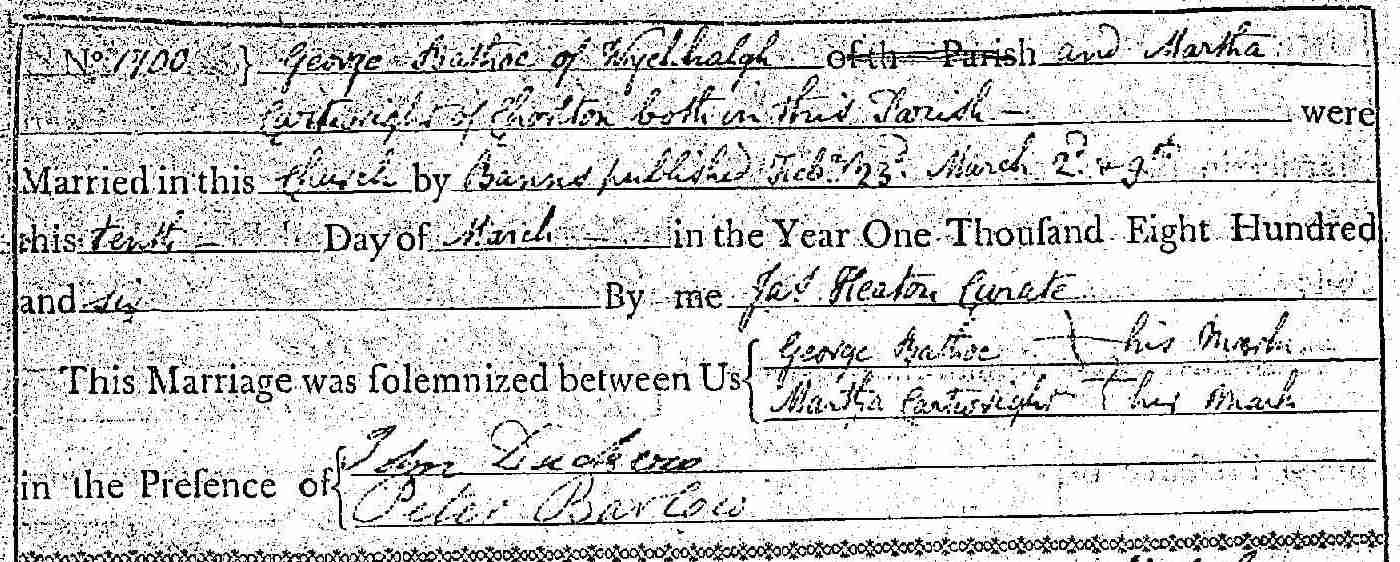 No. 1700 } George Bathoe of Wyehhalgh of th Parish and Martha
Cartwright of Chorlton both in this Parish — were
Married in this Church by Banns published Feb. 23d. March 2d. & 9th
this tenth — Day of March — in the Year One Thouſand Eight Hundred
and six By me Jas. Heaton Curate
This Marriage was ſolemnized between Us { George Bathoe + his Mark
Martha Cartwright + her Mark
in the Preſence of { John Duckerow
Peter Barlow